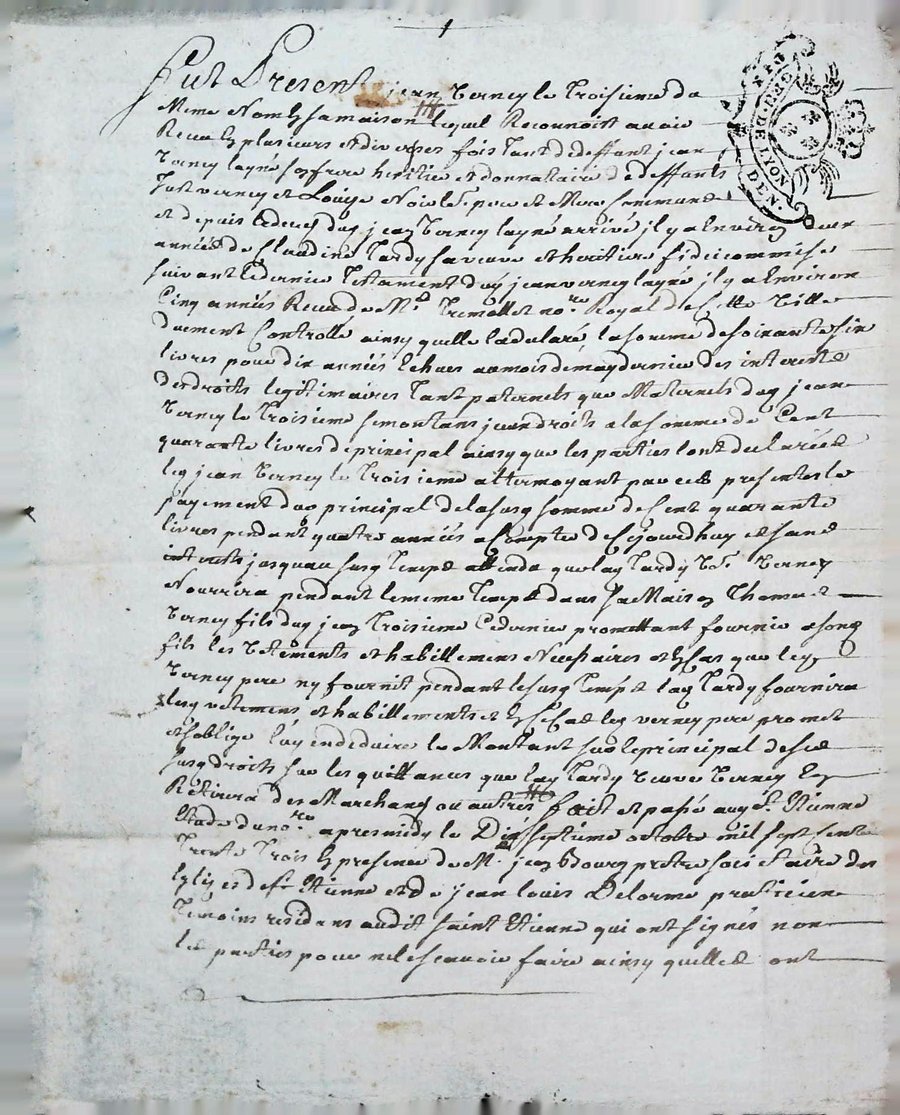 1
SIX
GEN. DE LYON
DEN.
Fut Present jean Verney le Troisieme de
Meme Nom En sa maison lequel Reconnoit avoir
Receu En plusieurs et diverses fois tant de deffunt jean
Verney layné son frere heritier et donnataire de deffunts
Just verney et Louise Noir Ses pere et Mere Communs
et depuis le deces dud. jean Verney layné arrivé il y a Environ deux
années de Claudine Tardy sa veuve et heritiere fideicommise
suivant le dernier Testament dud. jean verney layné il y a Environ
Cinq années Receu de Me Tremollet nore Royal de Cette Ville
duement Controllé ainsy quelle la declaré la somme de soixante six
livres pour dix années Echues au mois de may dernier des interets
des droits legitimaires tant paternels que Maternels dud. jean
Verney le Troisieme se montans seus droits a la somme de Cent
quarante livres de principal ainsy que les parties lont declarées
led. jean Verney le Troisieme attermoyant par ces presentes le
payement du principal de la susd. somme de Cent quarante
livres pendant quatre années a Compter de Cejourdhuy et sans
interets jusquau susd. Temps attendu que lad. Tardy Ve Verney
Nourrira pendant le meme Temps dans sa Maison Thomas
Verney fils dud. jean Troisieme Ce dernier promettant fournir a son
fils les Vetements et habillemens Necessaires et En Cas que led.
Verney pere ny fournit pendant le susd. Temps lad. Tardy fournira
lesd. vetemens et habillements et En Ce Cas led. verney pere promet
et soblige luy en deduire le Montant sur le principal de ses
susd. droits sur les quittances que lad. Tardy Veuve Verney En
Retirera des Marchands ou autres fait et passé aud. St. Etienne
Etude du nore apres midy le Dix septieme octobre mil sept Cents
Trente Trois En presence de Mr. jean pretre societaire des
Eglises de St. Etienne et de jean Louis Delorme praticien
Temoins residens audit Saint Etienne qui ont signés non
les parties pour ne le scavoir faire ainsy quelles ont